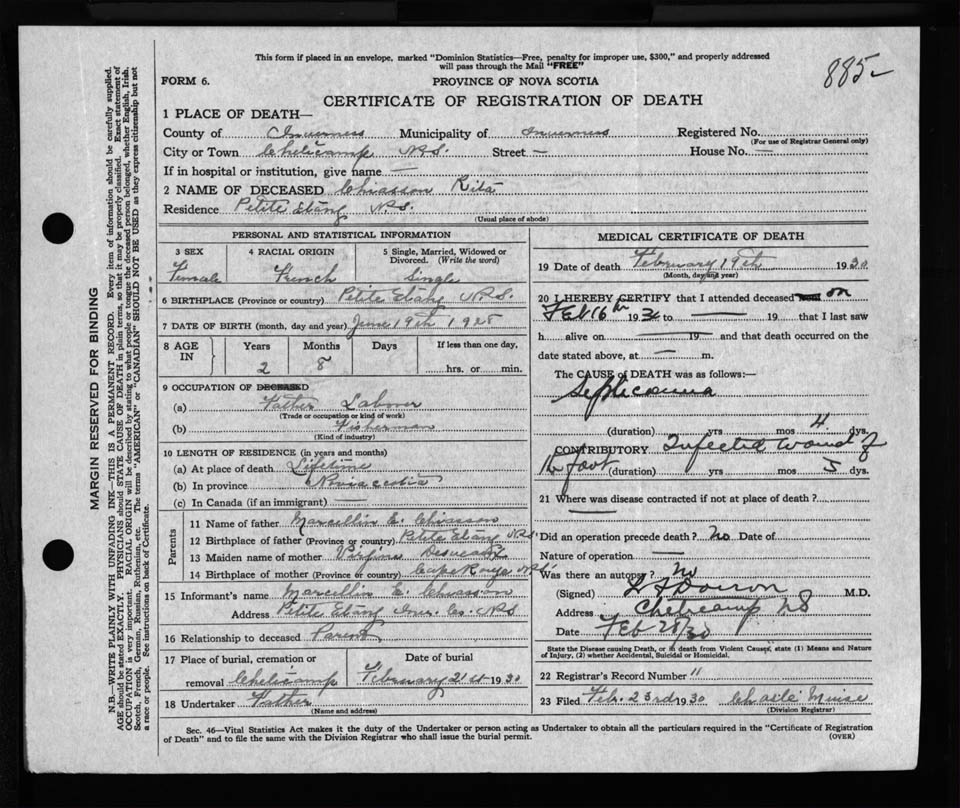 This form if placed in an envelope, marked "Dominion Statistics—Free, penalty for improper use, $300," and properly addressed
will pass through the Mail "FREE"
885-
FORM 6.
PROVINCE OF NOVA SCOTIA
CERTIFICATE OF REGISTRATION OF DEATH
1 PLACE OF DEATH—
County of Inverness Municipality of Inverness Registered No.
(For use of Registrar General only)
City or Town Chelicamp N.S. Street — House No. —
If in hospital or institution, give name —
2 NAME OF DECEASED Chiasson Rita
Residence Petite Etang N.S.
(Usual place of abode)
PERSONAL AND STATISTICAL INFORMATION
3 SEX 4 RACIAL ORIGIN 5 Single, Married, Widowed or Divorced. (Write the word)
Female French Single
6 BIRTHPLACE (Province or country) Petite Etang N.S.
7 DATE OF BIRTH (month, day and year) June 19th 1928
8 AGE IN Years Months Days If less than one day,
2 8 hrs. or min.
9 OCCUPATION OF DECEASED
(a) Father Laborer
(Trade or occupation or kind of work)
(b) Fisherman
(Kind of industry)
10 LENGTH OF RESIDENCE (in years and months)
(a) At place of death Lifetime
(b) In province Novia scotia
(c) In Canada (if an immigrant) —
Parents
11 Name of father Marcellin E. Chiasson
12 Birthplace of father (Province or country) Petite Etang N.S.
13 Maiden name of mother
14 Birthplace of mother (Province or country) Cape Rouge N.S.
15 Informant's name Marcellin E. Chiasson
Address Petite Etang Inv. Co. N.S
16 Relationship to deceased Parent
17 Place of burial, cremation or removal Chelicamp Date of burial February 21st 1930
18 Undertaker Father
(Name and address)
MEDICAL CERTIFICATE OF DEATH
19 Date of death February 19th 1930
(Month, day and year)
20 I HEREBY CERTIFY that I attended deceased on
Feb 16th 1930 to — 19 that I last saw
h alive on — 19 and that death occurred on the
date stated above, at — m.
The CAUSE of DEATH was as follows:—
Septicaemia
(duration) yrs mos 4 dys.
CONTRIBUTORY Infected wound of
foot (duration) yrs mos 5 dys.
21 Where was disease contracted if not at place of death?
Did an operation precede death? No Date of
Nature of operation —
Was there an autopsy? No
(Signed) M.D.
Address Chelicamp NS
Date Feb 20/30
State the Disease causing Death, or in death from Violent Causes, state (1) Means and Nature
of Injury, (2) whether Accidental, Suicidal or Homicidal.
22 Registrar's Record Number 11
23 Filed Feb. 23rd 1930 Muise
(Division Registrar)
Sec. 46—Vital Statistics Act makes it the duty of the Undertaker or person acting as Undertaker to obtain all the particulars required in the "Certificate of Registration
of Death" and to file the same with the Division Registrar who shall issue the burial permit.
(OVER)
MARGIN RESERVED FOR BINDING
N.B.—WRITE PLAINLY WITH UNFADING INK—THIS IS A PERMANENT RECORD. Every item of information should be carefully supplied.
AGE should be stated EXACTLY. PHYSICIANS should STATE CAUSE OF DEATH in plain terms, so that it may be properly classified. Exact statement of
OCCUPATION is very important. RACIAL ORIGIN will be described by stating to what people or tongue the deceased person belonged, whether English, Irish,
Scotch, French, German, Russian, Ruthenian, etc. The terms "AMERICAN" or "CANADIAN" SHOULD NOT BE USED as they express citizenship but not
a race or people. See instructions on back of Certificate.